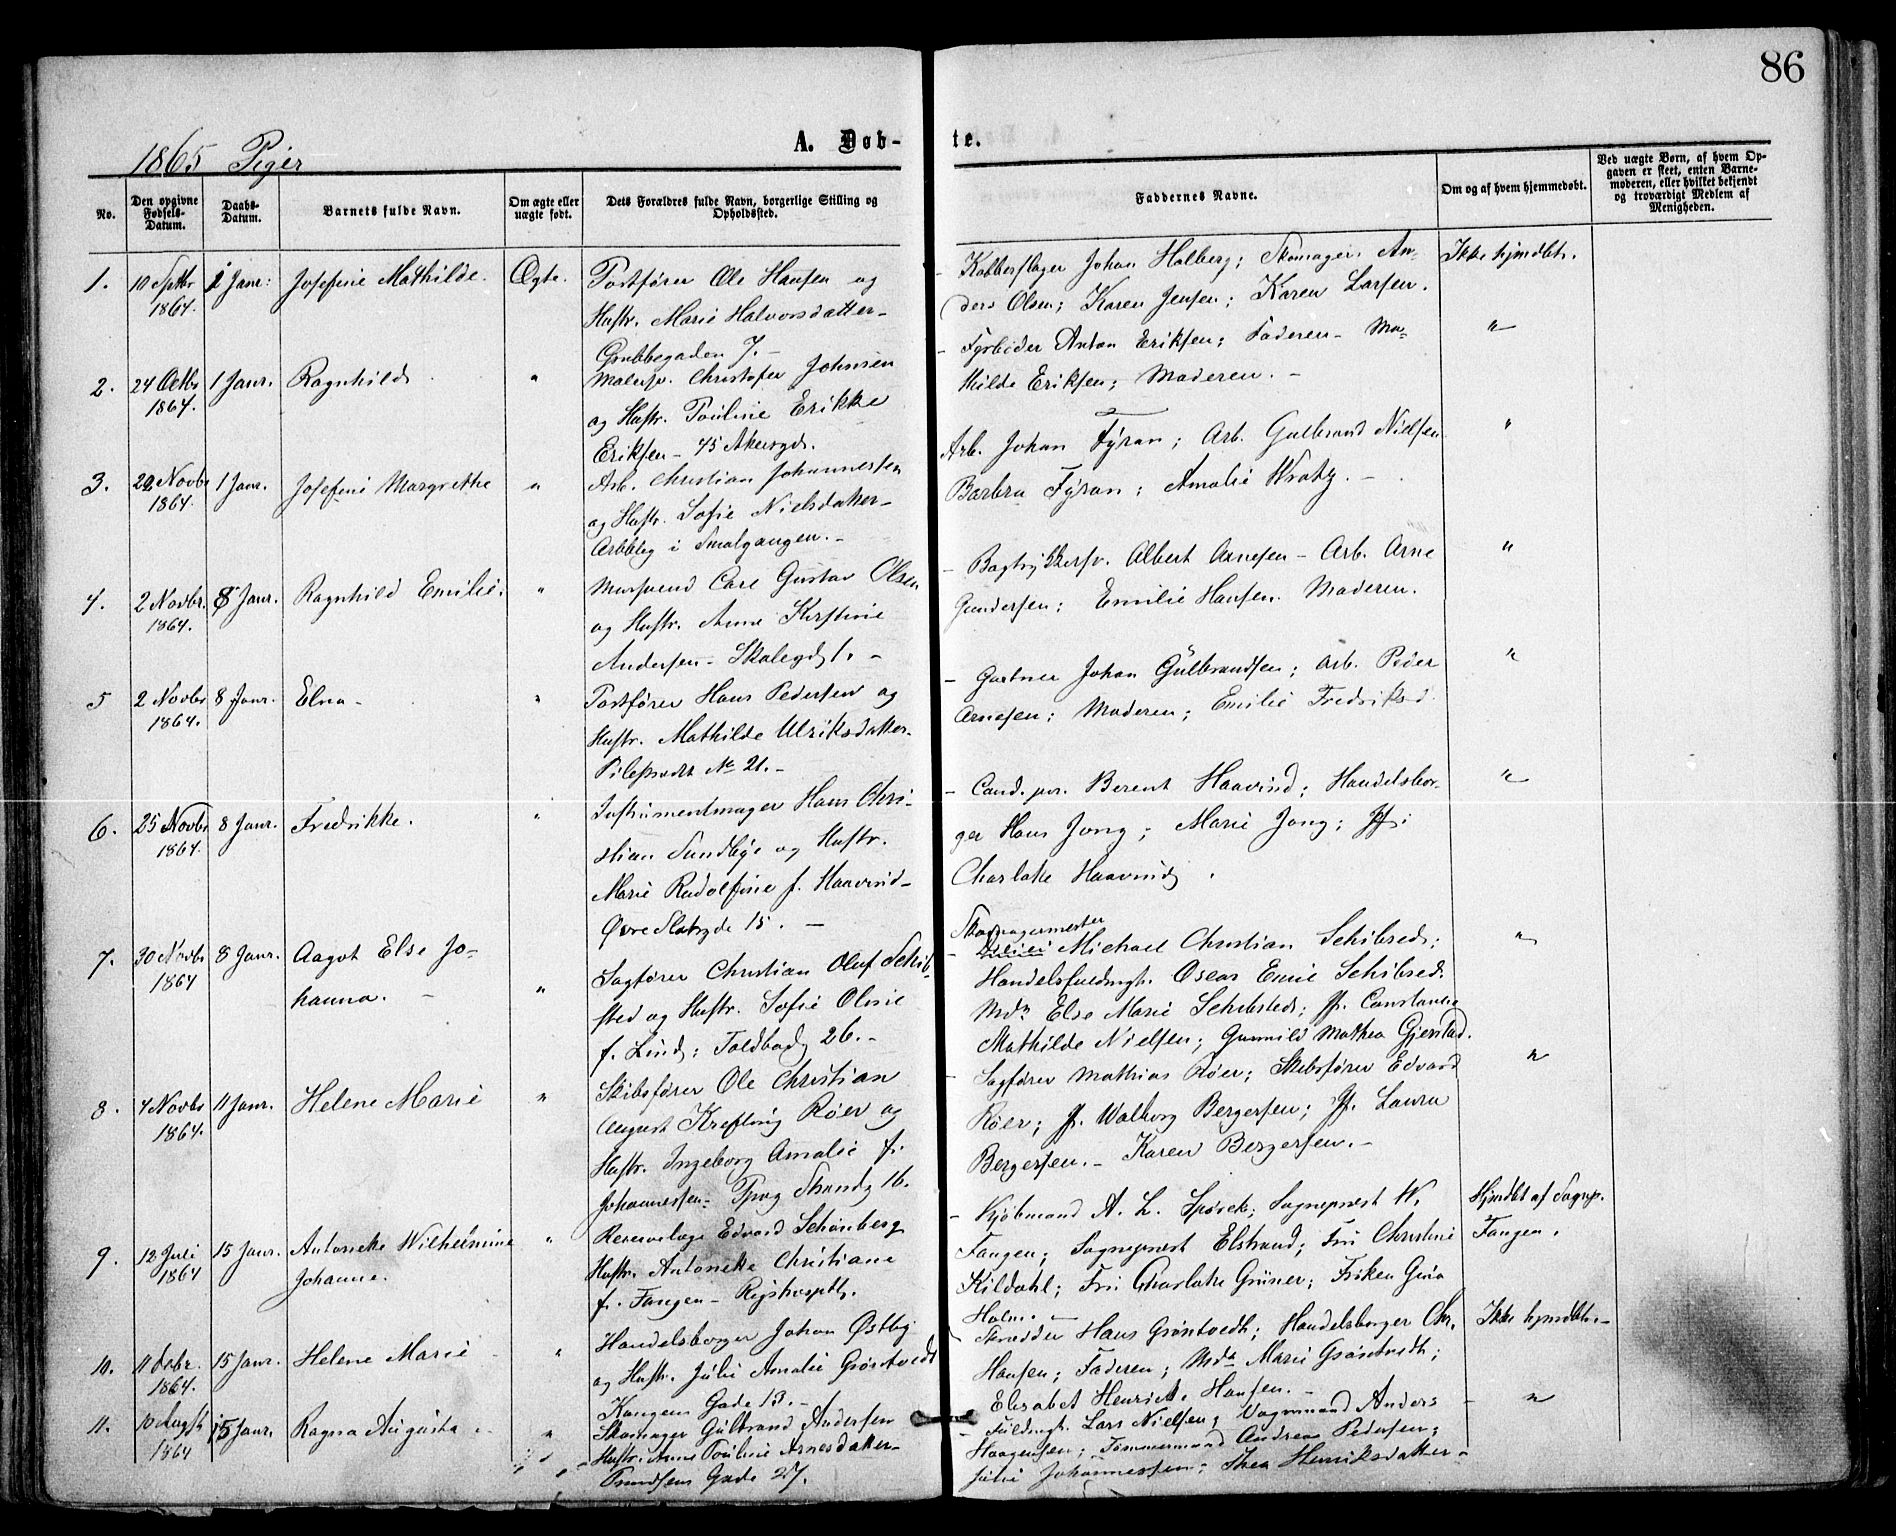 86
1865 Piger
A. Døb-
te.
No.
Den opgivne Fødsels-Datum.
Daabs-Datum.
Barnets fulde Navn.
Om ægte eller uægte født.
Dets Forældres fulde Navn, borgerlige Stilling og Opholdssted.
Faddernes Navne.
Om og af hvem hjemmedøbt.
Ved uægte Børn, af hvem Op-
gaven er skeet, enten Barne-
moderen, eller hvilket bekjendt
og troværdigt Medlem af
Menigheden.
1. 10 Septbr 1 Janr: Josefine Mathilde. Ægte. Postfører Ole Hansen og
1864. Hustr. Marie Halvorsdatter-
Grubbegaden 7.-
- Kobberslager Johan Halberg; Skomager An- Ikke hjmdbt.
ders Olsen; Karen Jensen; Karen Larsen.
2. 24 Octbr 1 Janr. Ragnhild " Malersv. Christofer Johnsen
1864. og Hustr. Pouline Erikke
Eriksen - 45 Akersgd.
- Fyrbøder Anton Eriksen; Faderen - Ma- "
thilde Eriksen; Moderen. -
3. 22 Novbr 1 Janr. Josefine Margrethe " Arb. Christian Johannesen
1864. og Hustr. Sofie Nielsdatter-
Arbblig i Smalgangen.-
Arb. Johan Fyran; Arb. Gulbrand Nielsen "
Barbra Fyran; Amalie Wratz. -
4. 2 Novbr. 8 Janr. Ragnhild Emilie. " Mursvend Carl Gustav Olsen
1864. og Hustr. Anne Kirstine
Andersen - Skolegd 1. -
- Bogtrykkersv. Albert Arnesen - Arb. Arne "
Gundersen; Emilie Hansen. Moderen.
5 2 Novbr 8 Janr. Elna- " Postfører Hans Pedersen og
1864. Hustr. Mathilde Ulriksdatter-
Pilestrædt No 21.-
- Gartner Johan Gulbrandsen; Arb. Peder "
Arnesen; Moderen; Emilie Fredriksd.
6. 25 Novbr 8 Janr. Fredrikke. " Instrumentmager Hans Chri-
1864. stian Sundbye og Hustr.
Marie Rudolfine f. Haavind-
Øvre Slotsgde 15. -
- Cand. jur. Berent Haavind; Handelsbor- "
ger Hans Jong; Marie Jong; Jf:
Charlotte Haavind.
7. 30 Novbr 8 Janr. Aagot Else Jo- " Sagfører Christian Oluf Schib-
1864 hanna. - sted og Hustr. Sofie Olivie
f. Lind; Toldbodg 26.-
Skomagermester
- Michael Christian Schibsted; "
Handelsfuldmgt. Oscar Emil Schibsted.
Mdm Else Marie Schibsted; Jf. Constance
Mathilde Nielsen; Gunnild Mathea Gjerstad.
8. 4 Novbr 11 Janr. Helene Marie " Skibsfører Ole Christian
1864. August Krefting Røer og
Hustr. Ingeborg Amalie f.
Johannessen- Tjuvg Strandg 16.
- Sagfører Mathias Røer; Skibsfører Edvard "
Røer; Jf. Walborg Bergersen; Jf. Laura
Bergersen.- Karen Bergersen.-
9. 12 Juli 15 Janr. Antonette Wilhelmine " Reservelæge Edvard Schønberg
1864 Johanne. Hustr. Antonette Christiane
f. Fangen - Rigshospitl.
- Kjøbmand A. L. Spørck; Sogneprest W. Hjmdbt af Sognep.
Fangen; Sogneprest Elstrand; Fru Christine Fangen.
Kildahl; Fru Charlotte Grüner; Frøken Gina
Holm.-
10. 11 Decbr. 15 Janr. Helene Marie " Handelsborger Johan Østby
1864. og Hustr. Julie Amalie Grøntvedt
Kongens Gade 13.-
Skrædder Hans Grøntvedt; Handelsborger Chr. Ikke hjmdbt.-
Hansen; Faderen; Mdm Marie Grøntvedt;
Elisabet Henriet. Hansen.-
11. 10 Augst 15 Janr. Ragna Augusta. " Skomager Gulbrand Andersen
1864 Hustr. Anne Pouline Arnesdatter-
Trondsens Gade 27.
- Fuldmgt. Lars Nielsen; Vognmand Anders "
Haagensen; Tømmermand Andreas Pedersen;
Julie Johannessen; Thea Henriksdatter-